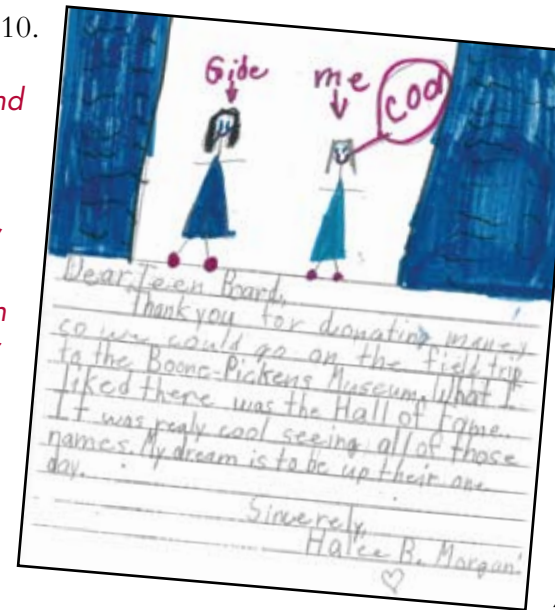 10.
nd
y
n
y
Gide
me
cool
Dear Teen Board,
Thank you for donating money
so we could go on the field trip
to the Boone-Pickens Museum. What I
liked there was the Hall of Fame.
It was realy cool seeing all of those
names. My dream is to be up their one
day.
Sincerely,
Halee B. Morgan